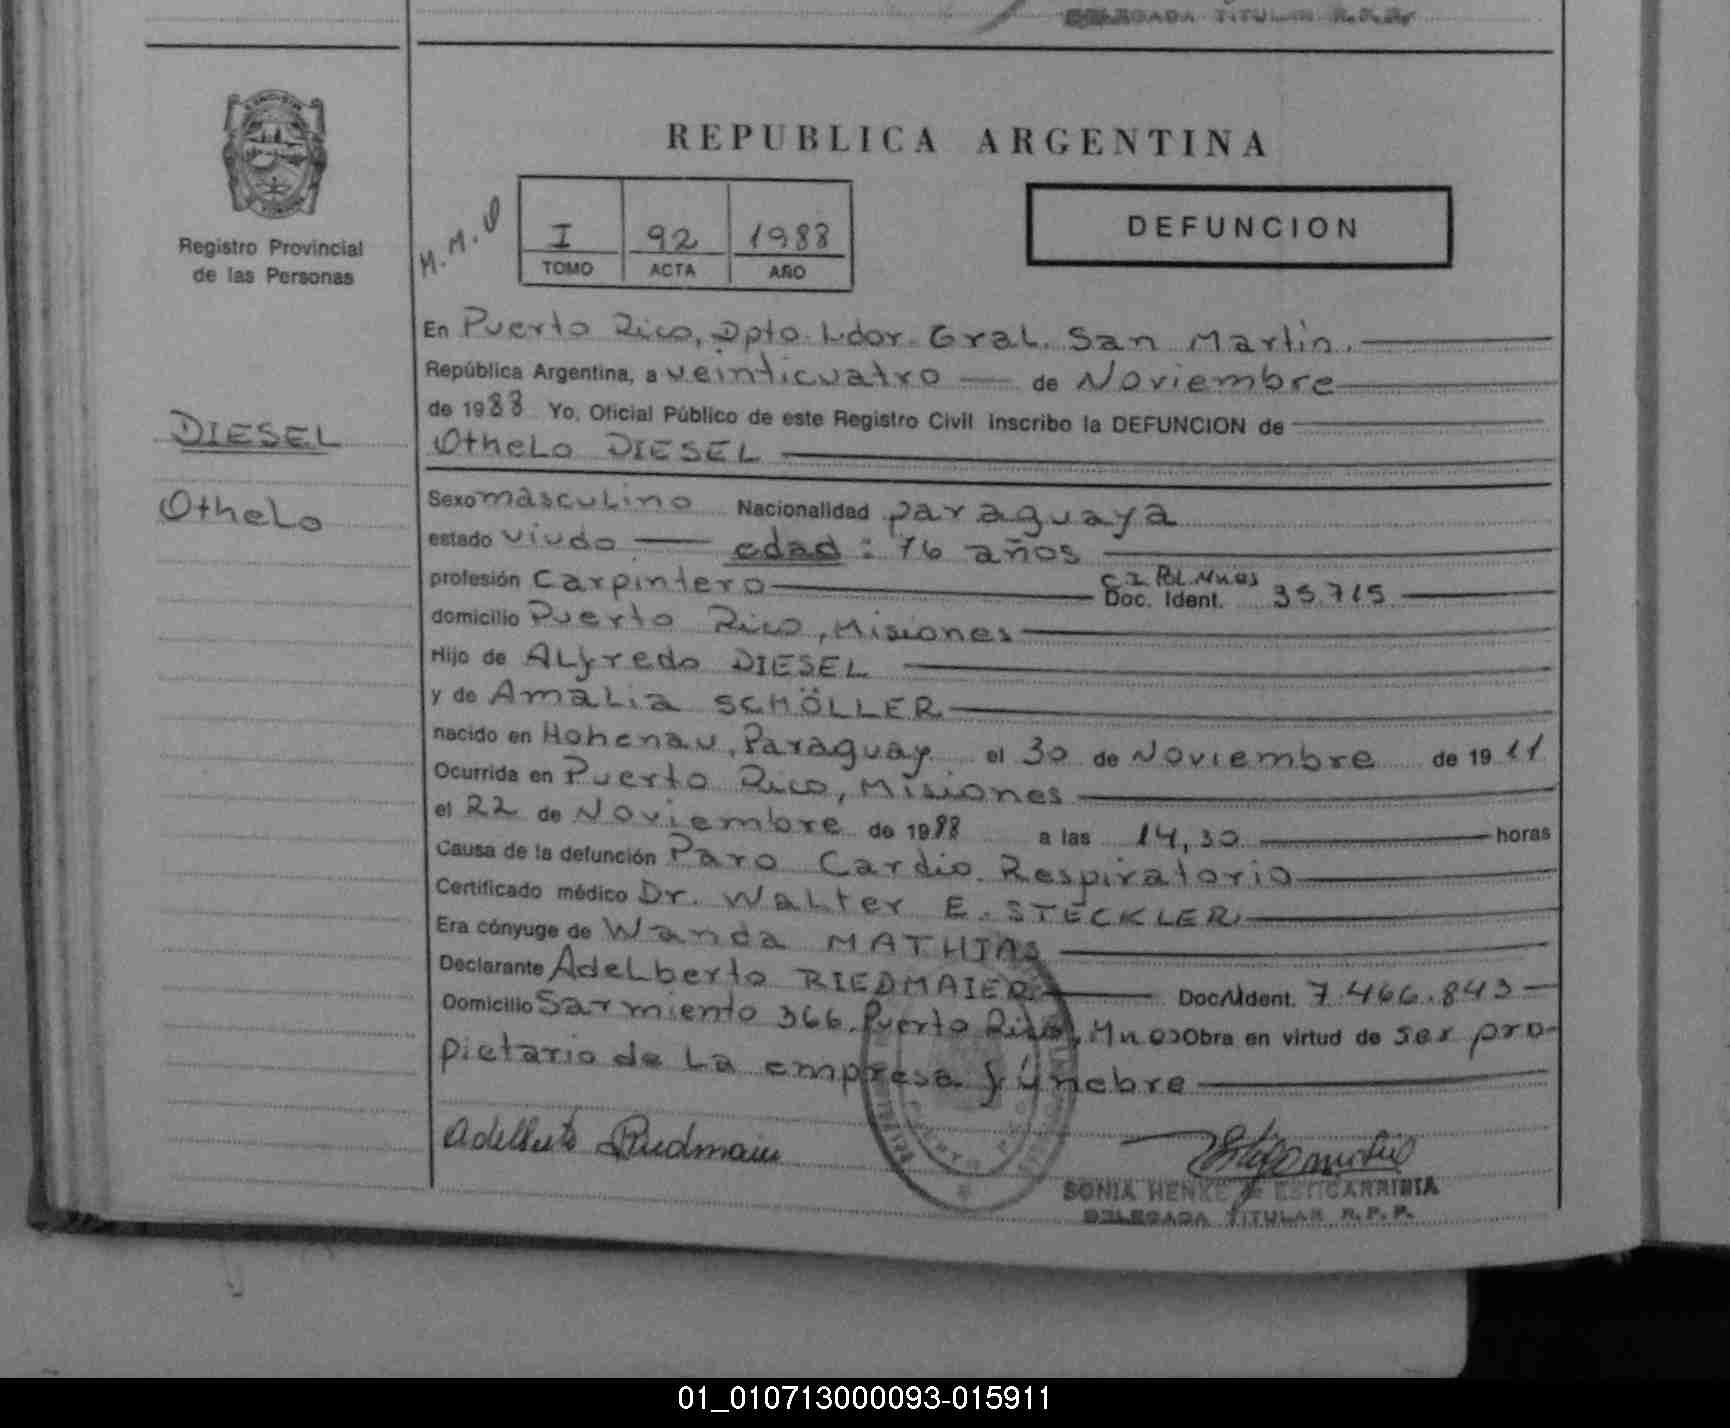 DELEGADA TITULAR R.P.P.
REPUBLICA ARGENTINA
Registro Provincial
de las Personas
M.M.
I 92 1988
TOMO ACTA AÑO
DEFUNCION
En Puerto Rico, Dpto. Ldor. Gral. San Martín.
República Argentina, a veinticuatro de Noviembre
de 1988 Yo, Oficial Público de este Registro Civil Inscribo la DEFUNCION de
DIESEL
OtheLo DIESEL
OtheLo
Sexo mascuLino Nacionalidad paraguaya
estado viudo edad: 76 años
profesión Carpintero C.I. Pol. Mnes Doc. Ident. 35.715
domicilio Puerto Rico, Misiones
Hijo de ALfredo DIESEL
y de AmaLia SCHÖLLER
nacido en Hohenau, Paraguay el 30 de Noviembre de 1911
Ocurrida en Puerto Rico, Misiones
el 22 de Noviembre de 1988 a las 14,30 horas
Causa de la defunción Paro Cardio Respiratorio
Certificado médico Dr. WaLter E. STECKLER
Era cónyuge de Wanda MATHIAS
Declarante AdeLberto RIEDMAIER Doc. Ident. 7.466.843
Domicilio Sarmiento 366, Puerto Rico, Mnes Obra en virtud de ser pro-
pietario de La empresa fúnebre
Adelberto Riedmaier
SONIA HENKE de ESTIGARRIBIA
DELEGADA TITULAR R.P.P.
01_010713000093-015911